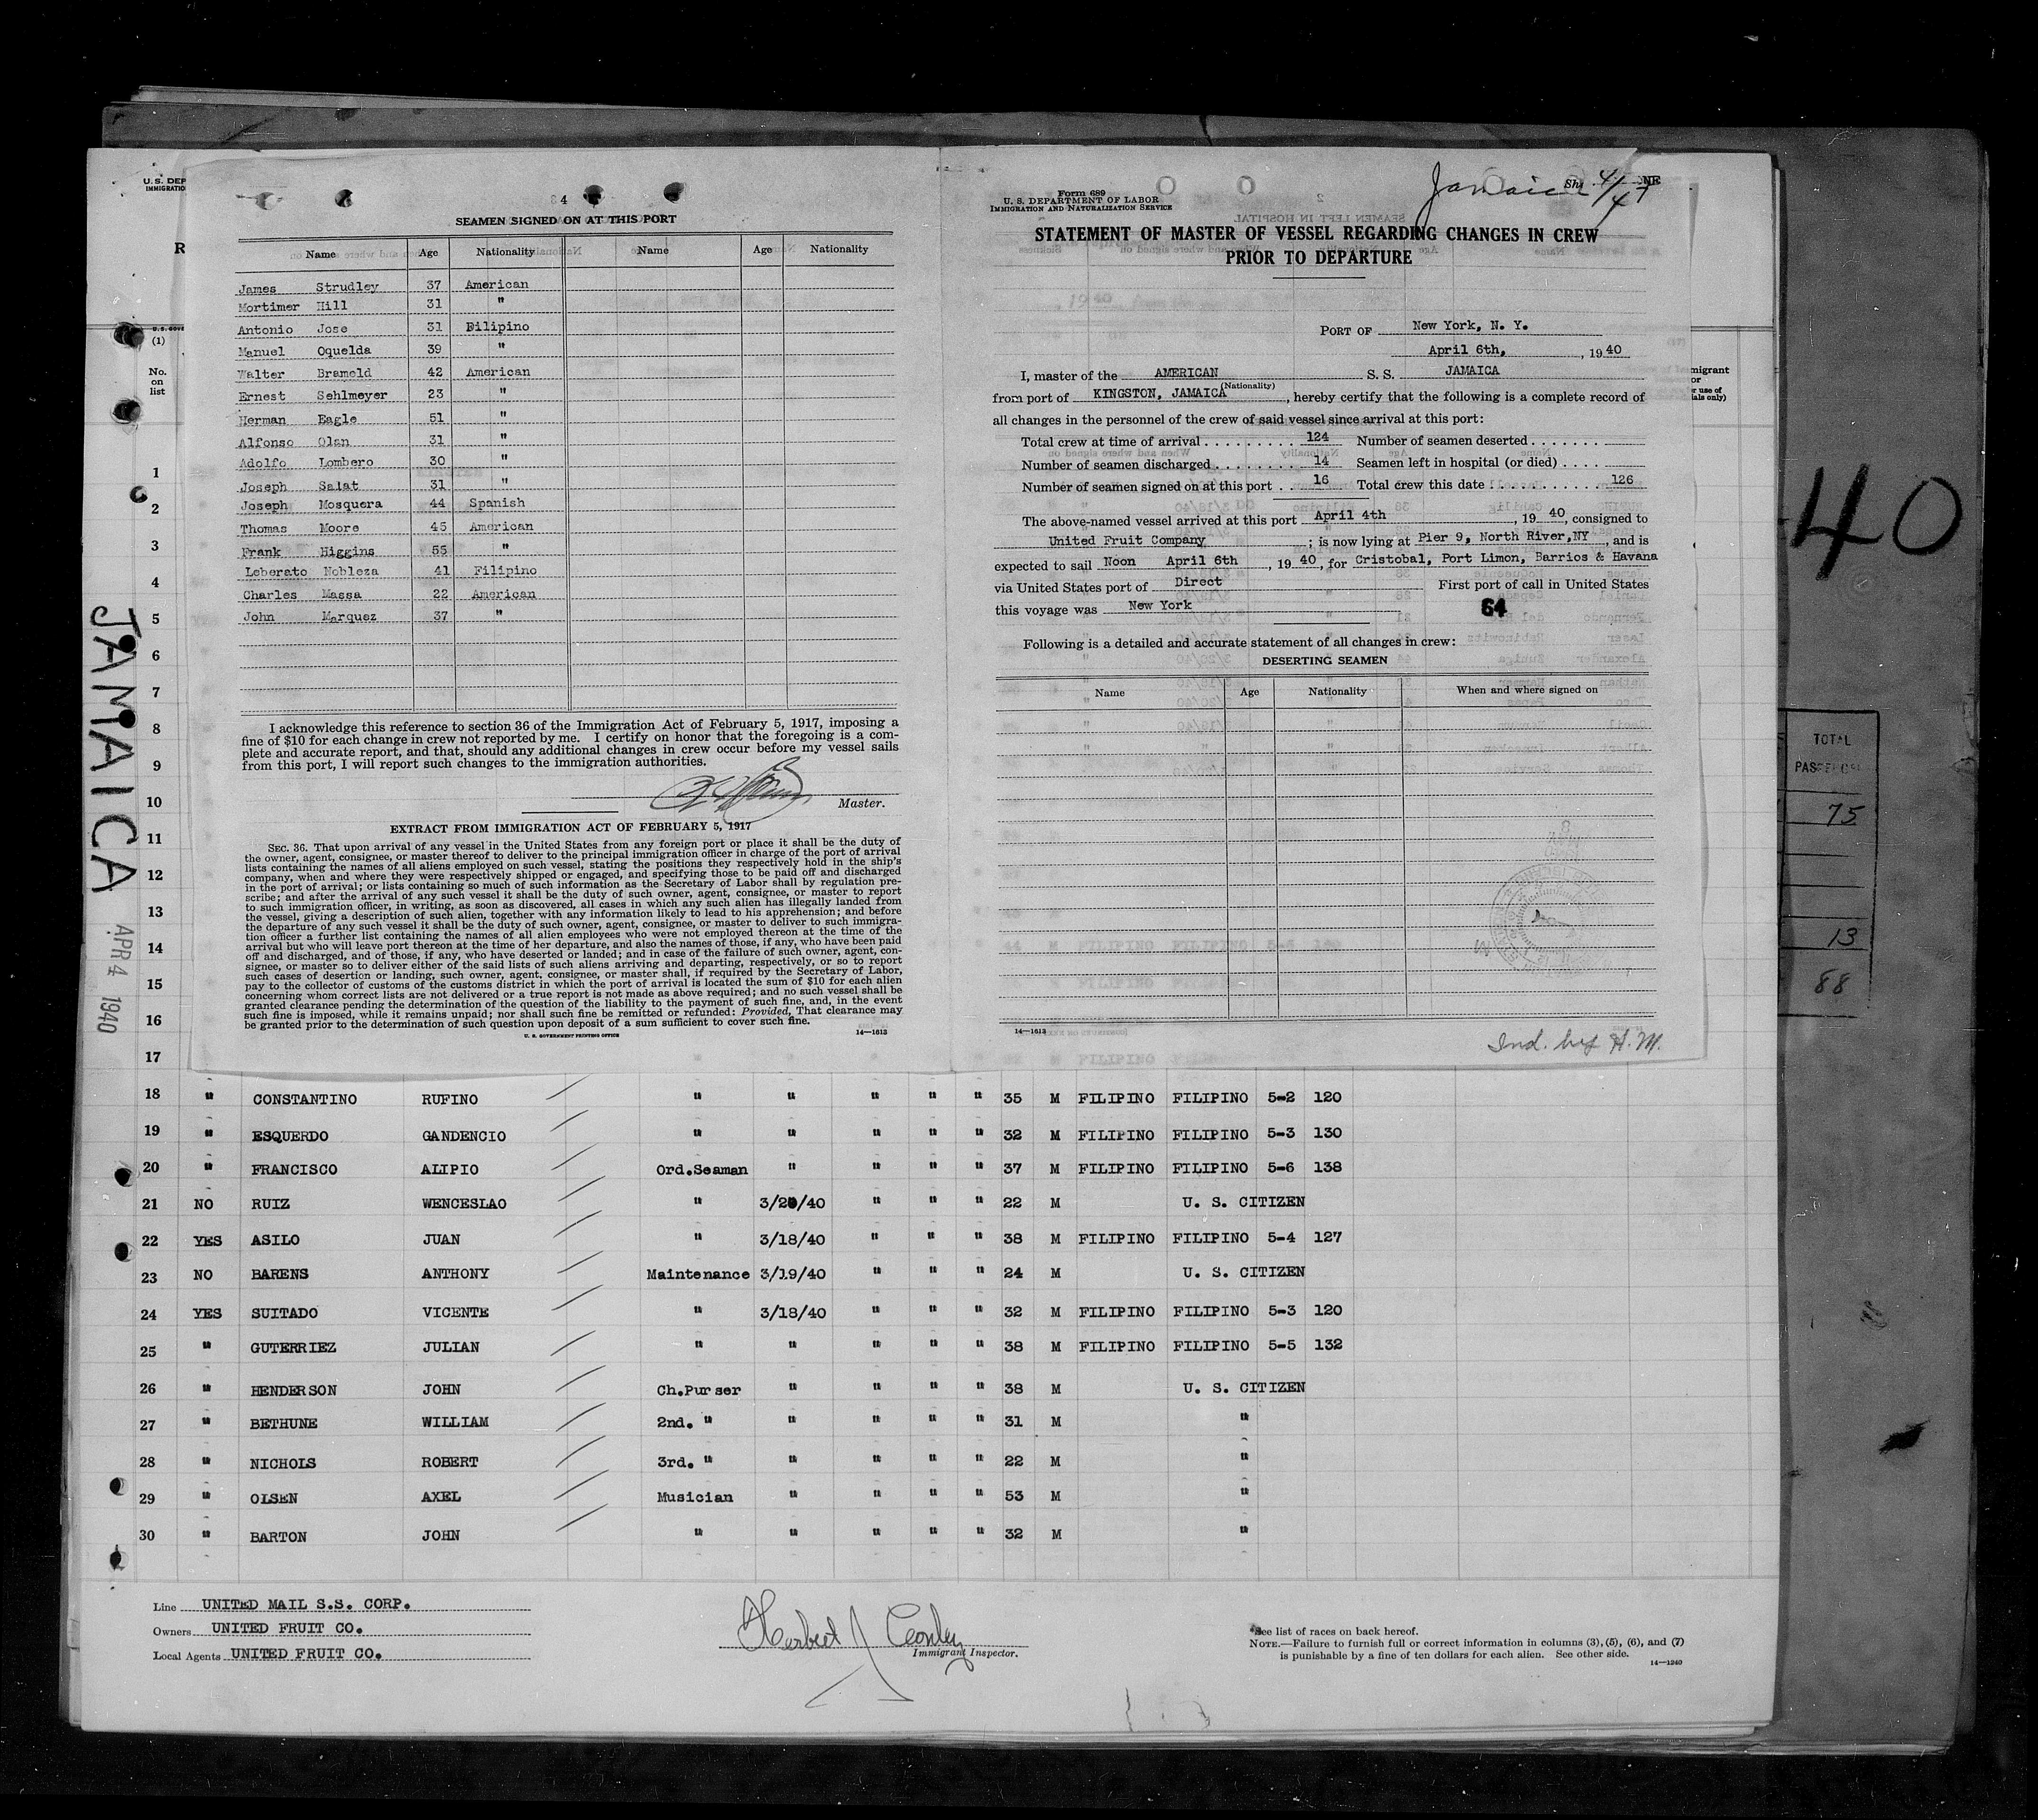 U. S. DEP
IMMIGRATIO
R
U.S. GOVE
(1)
No.
on
list
4
SEAMEN SIGNED ON AT THIS PORT
Name Age Nationality Name Age Nationality
James Strudley 37 American
Mortimer Hill 31 "
Antonio Jose 31 Filipino
Manuel Oquelda 39 "
Walter Brameld 42 American
Ernest Sehlmeyer 23 "
Herman Eagle 51 "
Alfonso Olan 31 "
Adolfo Lombero 30 "
Joseph Salat 31 "
Joseph Mosquera 44 Spanish
Thomas Moore 45 American
Frank Higgins 55 "
Leberato Nobleza 41 Filipino
Charles Massa 22 American
John Marquez 37 "
I acknowledge this reference to section 36 of the Immigration Act of February 5, 1917, imposing a
fine of $10 for each change in crew not reported by me. I certify on honor that the foregoing is a com-
plete and accurate report, and that, should any additional changes in crew occur before my vessel sails
from this port, I will report such changes to the immigration authorities.
Master.
EXTRACT FROM IMMIGRATION ACT OF FEBRUARY 5, 1917
SEC. 36. That upon arrival of any vessel in the United States from any foreign port or place it shall be the duty of
the owner, agent, consignee, or master thereof to deliver to the principal immigration officer in charge of the port of arrival
lists containing the names of all aliens employed on such vessel, stating the positions they respectively hold in the ship's
company, when and where they were respectively shipped or engaged, and specifying those to be paid off and discharged
in the port of arrival; or lists containing so much of such information as the Secretary of Labor shall by regulation pre-
scribe; and after the arrival of any such vessel it shall be the duty of such owner, agent, consignee, or master to report
to such immigration officer, in writing, as soon as discovered, all cases in which any such alien has illegally landed from
the vessel, giving a description of such alien, together with any information likely to lead to his apprehension; and before
the departure of any such vessel it shall be the duty of such owner, agent, consignee, or master to deliver to such immigra-
tion officer a further list containing the names of all alien employees who were not employed thereon at the time of the
arrival but who will leave port thereon at the time of her departure, and also the names of those, if any, who have been paid
off and discharged, and of those, if any, who have deserted or landed; and in case of the failure of such owner, agent, con-
signee, or master so to deliver either of the said lists of such aliens arriving and departing, respectively, or so to report
such cases of desertion or landing, such owner, agent, consignee, or master shall, if required by the Secretary of Labor,
pay to the collector of customs of the customs district in which the port of arrival is located the sum of $10 for each alien
concerning whom correct lists are not delivered or a true report is not made as above required; and no such vessel shall be
granted clearance pending the determination of the question of the liability to the payment of such fine, and, in the event
such fine is imposed, while it remains unpaid; nor shall such fine be remitted or refunded: Provided, That clearance may
be granted prior to the determination of such question upon deposit of a sum sufficient to cover such fine.
U. S. GOVERNMENT PRINTING OFFICE 14—1613
Form 689
U. S. DEPARTMENT OF LABOR
IMMIGRATION AND NATURALIZATION SERVICE
Jamaica 4/47
STATEMENT OF MASTER OF VESSEL REGARDING CHANGES IN CREW
PRIOR TO DEPARTURE
PORT OF New York, N. Y.
April 6th, , 1940
I, master of the AMERICAN S. S. JAMAICA
(Nationality)
from port of KINGSTON, JAMAICA , hereby certify that the following is a complete record of
all changes in the personnel of the crew of said vessel since arrival at this port:
Total crew at time of arrival . . . . . . . . . 124 Number of seamen deserted . . . . . . .
Number of seamen discharged . . . . . . . . 14 Seamen left in hospital (or died) . . . .
Number of seamen signed on at this port . . 16 Total crew this date . . . . . . . . . . . 126
The above-named vessel arrived at this port April 4th , 1940, consigned to
United Fruit Company ; is now lying at Pier 9, North River,NY , and is
expected to sail Noon April 6th , 1940, for Cristobal, Port Limon, Barrios & Havana
via United States port of Direct First port of call in United States
this voyage was New York 64
Following is a detailed and accurate statement of all changes in crew:
DESERTING SEAMEN
Name Age Nationality When and where signed on
14—1613
Ind. by H.M.
migrant
or
r use of
ials only)
40
TOTAL
75
13
88
JAMAICA APR 4 1940
1
2
3
4
5
6
7
8
9
10
11
12
13
14
15
16
17
18 " CONSTANTINO RUFINO " " " " " 35 M FILIPINO FILIPINO 5-2 120
19 " ESQUERDO GANDENCIO " " " " " 32 M FILIPINO FILIPINO 5-3 130
20 " FRANCISCO ALIPIO Ord.Seaman " " " " 37 M FILIPINO FILIPINO 5-6 138
21 NO RUIZ WENCESLAO " 3/20/40 " " " 22 M U. S. CITIZEN
22 YES ASILO JUAN " 3/18/40 " " " 38 M FILIPINO FILIPINO 5-4 127
23 NO BARENS ANTHONY Maintenance 3/19/40 " " " 24 M U. S. CITIZEN
24 YES SUITADO VICENTE " 3/18/40 " " " 32 M FILIPINO FILIPINO 5-3 120
25 " GUTERRIEZ JULIAN " " " " " 38 M FILIPINO FILIPINO 5-5 132
26 " HENDERSON JOHN Ch.Purser " " " " 38 M U. S. CITIZEN
27 " BETHUNE WILLIAM 2nd. " " " " " 31 M "
28 " NICHOLS ROBERT 3rd. " " " " " 22 M "
29 " OLSEN AXEL Musician " " " " 53 M "
30 " BARTON JOHN " " " " " 32 M "
Line UNITED MAIL S.S. CORP.
Owners UNITED FRUIT CO.
Local Agents UNITED FRUIT CO.
Herbert J Conley
Immigrant Inspector.
*See list of races on back hereof.
NOTE.—Failure to furnish full or correct information in columns (3), (5), (6), and (7)
is punishable by a fine of ten dollars for each alien. See other side.
14—1240